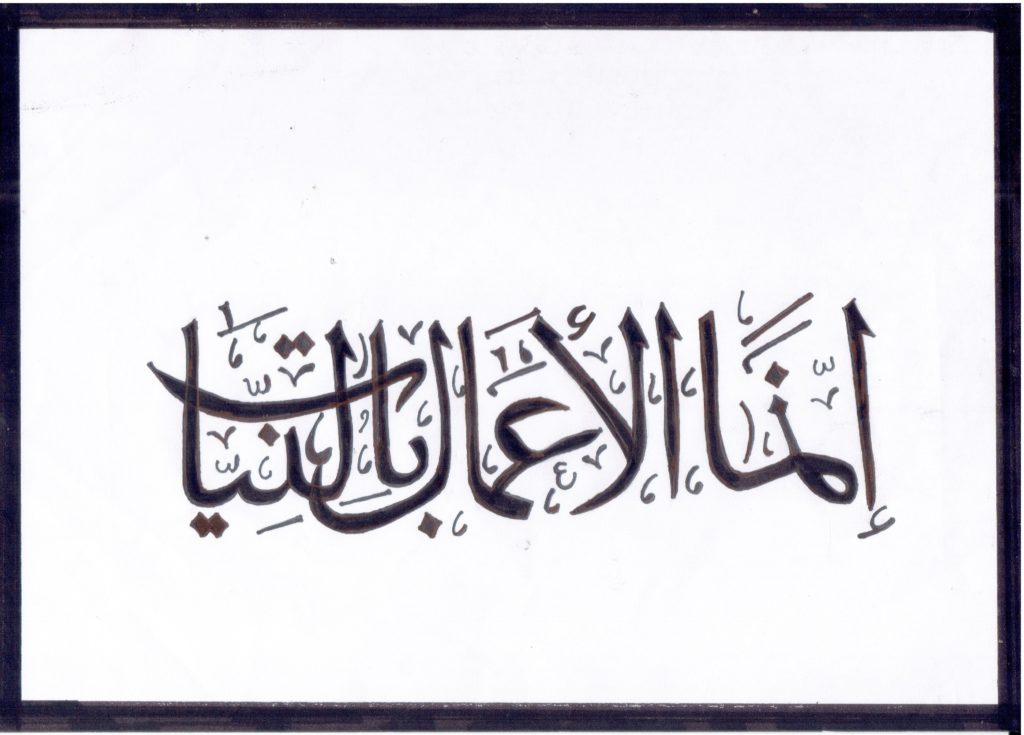 إنما الأعمال بالنيات